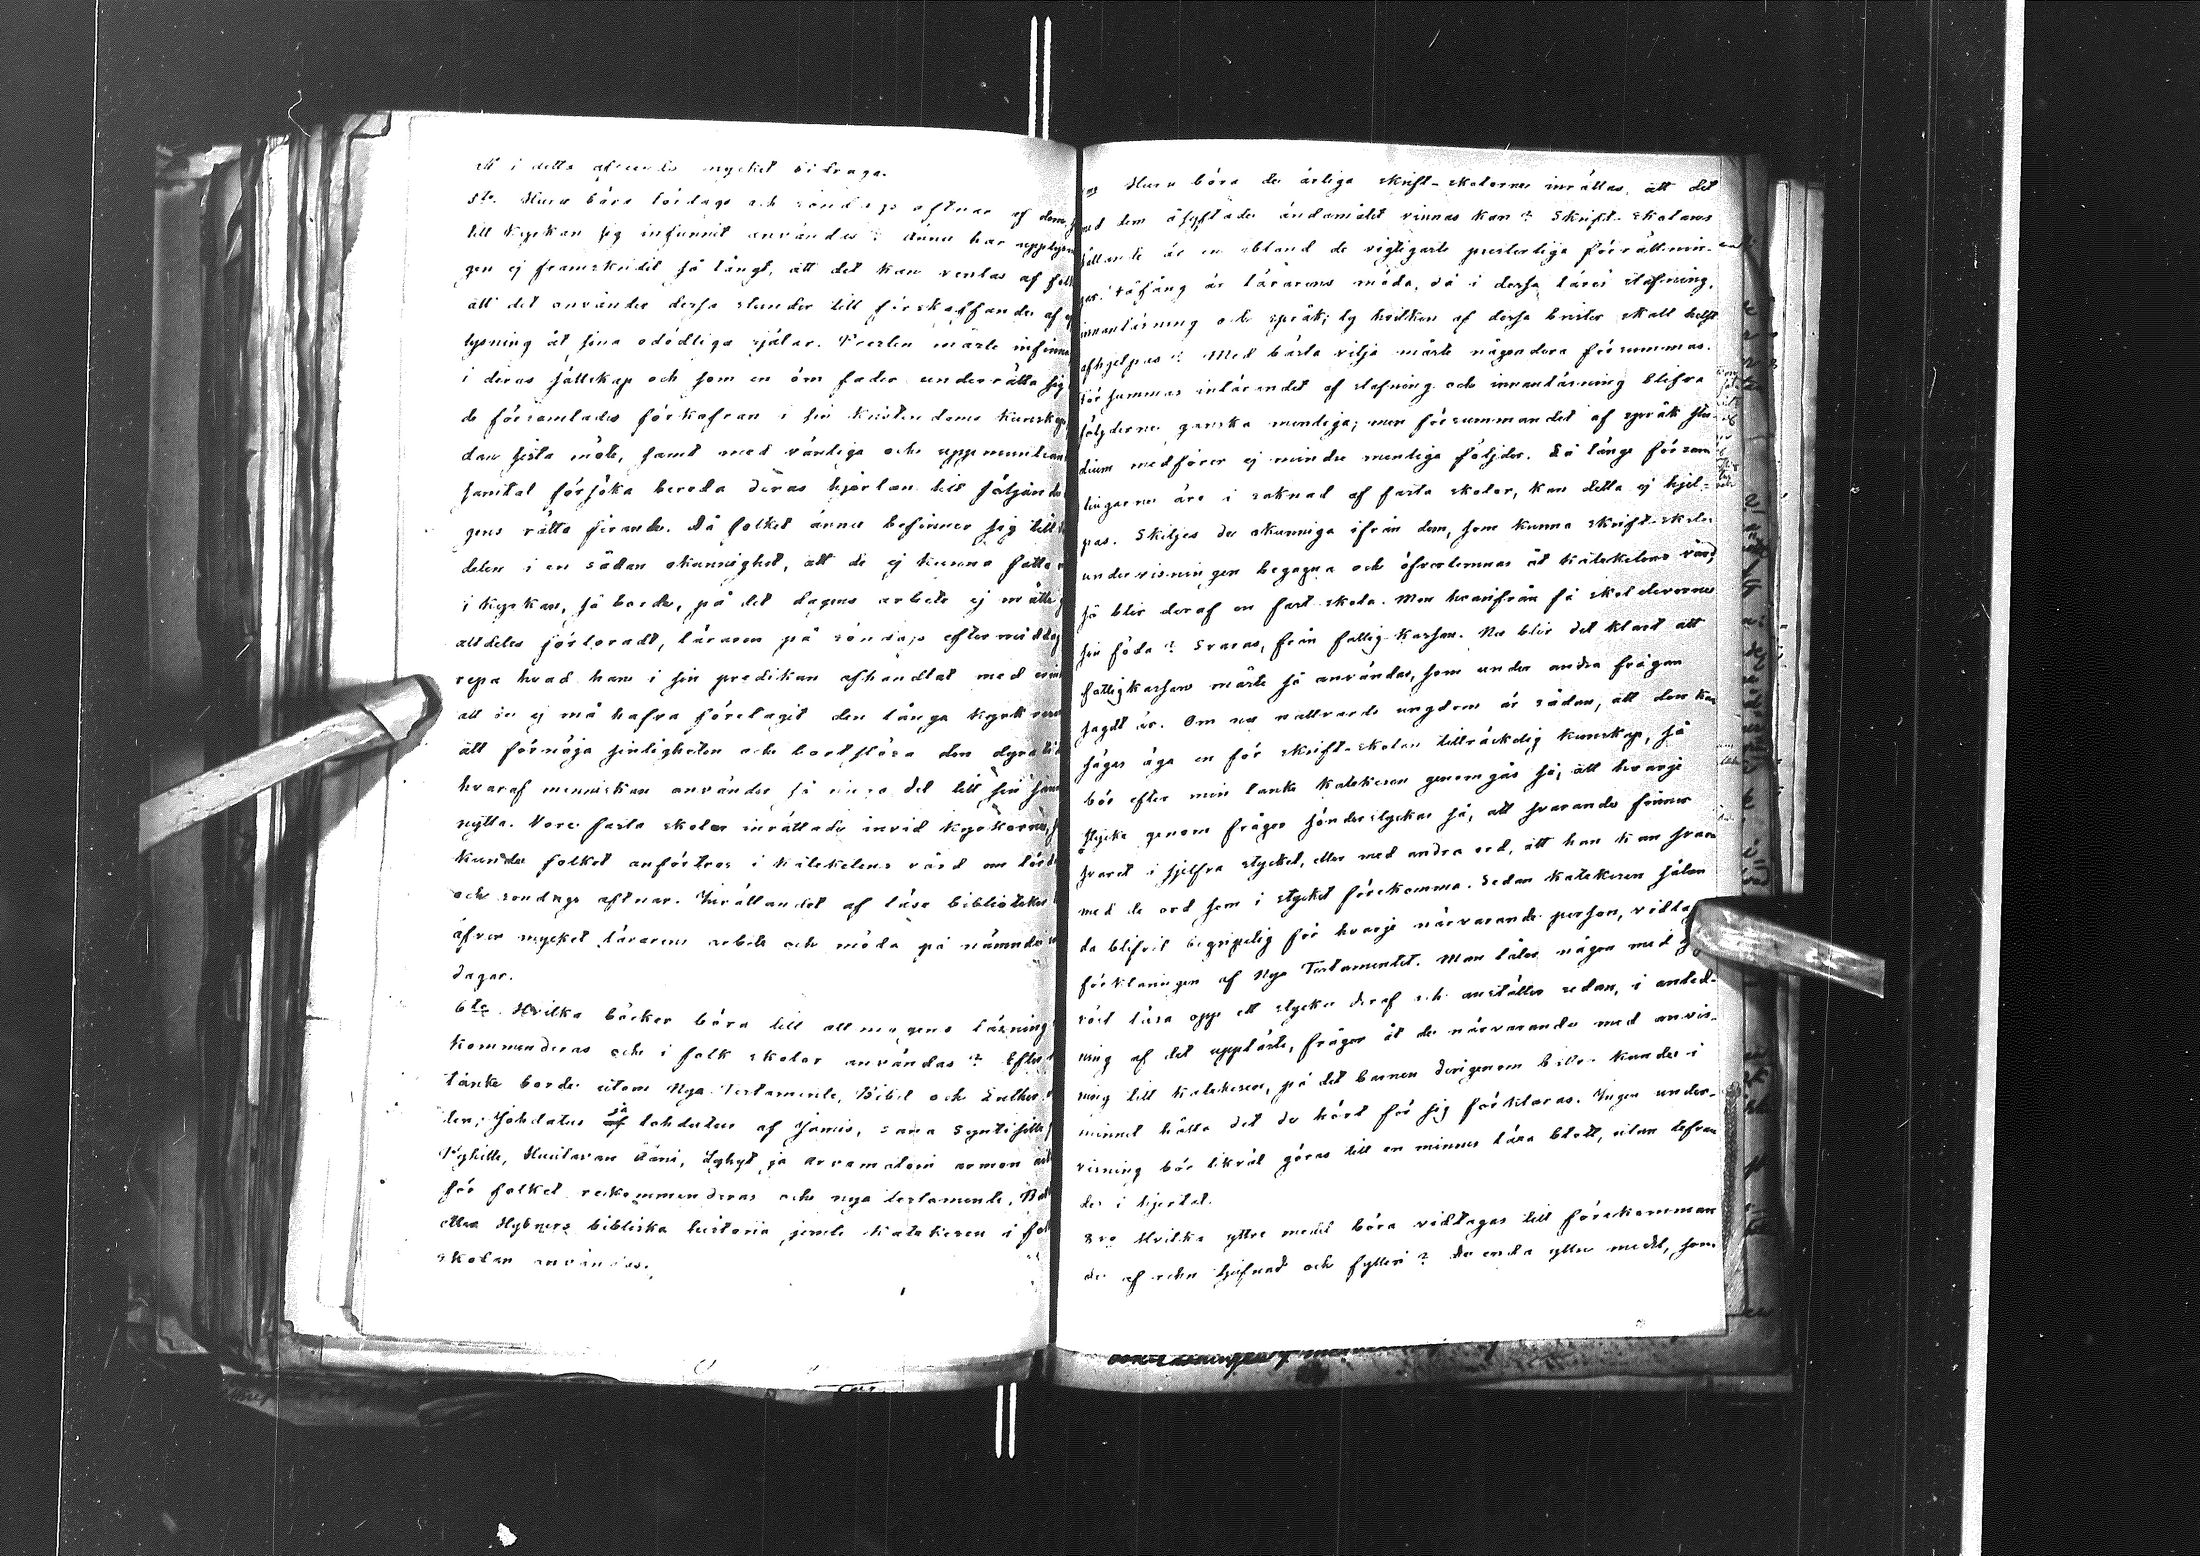 i detta afseende mycket bidraga.
5te. Huru böra lördags och söndags aftnar af dem,
till kyrkan sig infunnit användas? Ännu har upplysnin
gen ej framskridit så långt, att det kan ventas af folk
att det använder dessa stunder till förskaffandet af
lysning åt sina odödliga själar. Presten måste infinna
i deras sällskap och som en öm fader underrätta sig
de församlades förkofran i sin kristendoms kunskap
dan sista möte, samt med vänliga och uppmuntran
samtal försöka bereda deras hjertan till följande
gens rätta firande. Då folket ännu befinner sig till
delen i en sådan okunnighet, att de ej kunna fatta
i kyrkan, så borde, på det dagens arbete ej måtte
alldeles förloradt, läraren på söndags eftermiddag
repa hvad han i sin predikan afhandlat med
att de ej må hafva företagit den långa kyrk
att förnöja sinligheten och bortslösa den dyra
hvaraf menniskan använder så ringa del till sin
nytta. Vore fasta skolor inrättade invid kyrkorna,
kunde folket anförtros i kateketens vård om lörd
och söndags aftnar. Inrättandet af läse bibliotek
äfven mycket lärarens arbete och möda på nämnde
dagar.
6te. Hvilka böcker böra till allmogens läsning
kommenderas och i folk skolor användas? Efter
tanke borde utom Nya Testamente, Bibel och Luther
ja af Jämis, sana Syntisille
Huutavan Ääni, Lyhyt ja
för folket rekommenderas och nya testamente,
eller Hybners bibliska historia jemte katekesen i fol
skolan användas.
Huru böra de årliga skrift-skolorne inrättas, att det
med dem åsyftade ändamålet vinnas kan? Skrift-skolans
hållande är en ibland de vigtigaste presterliga förrättnin-
gar. Fåfäng är lärarens möda, då i dessa läres stafning,
innanläsning och språk; ty hvilken af dessa brister skall helst
afhjelpas? Med bästa vilja måste någondera försummas.
försummas inlärandet af stafning och innanläsning blifva
följderne ganska menliga; men försummandet af språk stu-
dium medförer ej mindre menliga följder. Så länge försam-
lingarne äro i saknad af fasta skolor, kan detta ej hjel-
pas. Skiljes de okunniga ifrån dem, som kunna skrift-skole
undervisningen begagna och öfverlemnas åt katekетens vård,
så blir deraf en fast skola. Men hvarifrån få skoleleverne
sin föda? Svaras, från fattig-kassan. Nu blir det klart att
fattigkassan måste så användas, som under andra frågan
sagdt är. Om nu nattvards ungdom är sådan, att den kan
sägas äga en för skrift-skolan tillräckelig kunskap, så
bör efter min tanke katekesen genomgås så, att hvarje
stycke genom frågor sönderstyckas så, att svarande finner
svaret i sjelfva stycket, eller med andra ord, att han kan svara
med de ord som i stycket förekomma. Sedan katekesen sålun
da blifvit begripelig för hvarje närvarande person, vidtages
förklaringen af Nya Testamentet. Man låter någon med
röst läsa opp ett stycke deraf och anställer sedan, i anled-
ning af det upplästa, frågor åt de närvarande med anvis-
ning till katekesen, på det barnen derigenom kunde i
minnet hålla det de hört för sig förklaras. Ingen under-
visning bör likväl göras till en minnes läxa blott, utan
de i hjertat.
8vo Hvilka yttre medel böra vidtagas till förekomman
de af tjufnad och fylleri? De enda yttre medel, som